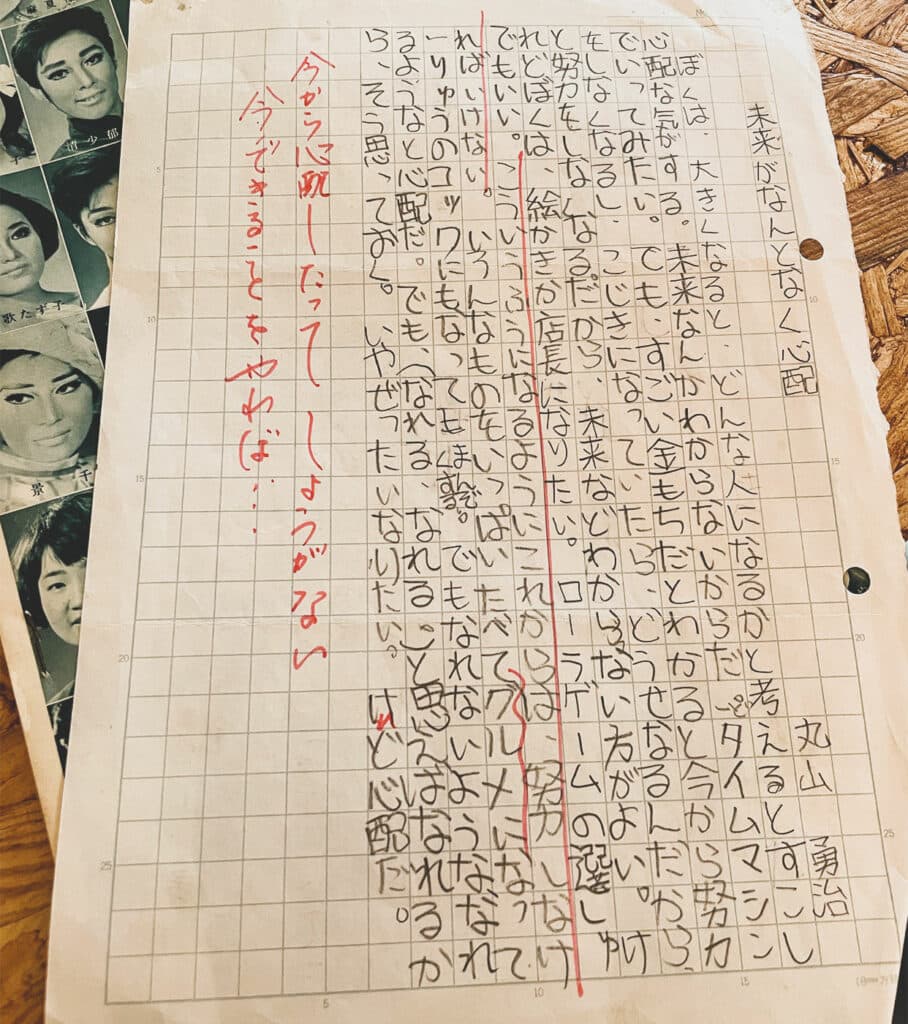 未来がなんとなく心配
丸山 勇治
ぼくは、大きくなると、どんな人になるかと考えるとすこし
心配な気がする。未来なんかわからないからだ。タイムマシン
でいってみたい。でも、すごい金もちだとわかると今から努力
をしなくなるし、こじきになっていたら、どうせなるんだから、
と努力をしなくなる。だから、未来などわからない方がよい。け
れどぼくは、絵かきか店長になりたい。ローラーゲームの選しゅ
でもいい。こういうふうになるようにこれからは、努力しなけ
ればいけない。いろんなものをいっぱいたべてグルメになって
一りゅうのコックにもなってもまんぞくする。でもなれないようななれ
るようなと心配だ。でも、(なれる、なれる。)と思えばなれるか
ら、そう思っておく。いやぜったいなりたい。けれど心配だ。
今から心配したって しょうがない
今できることをやれば…